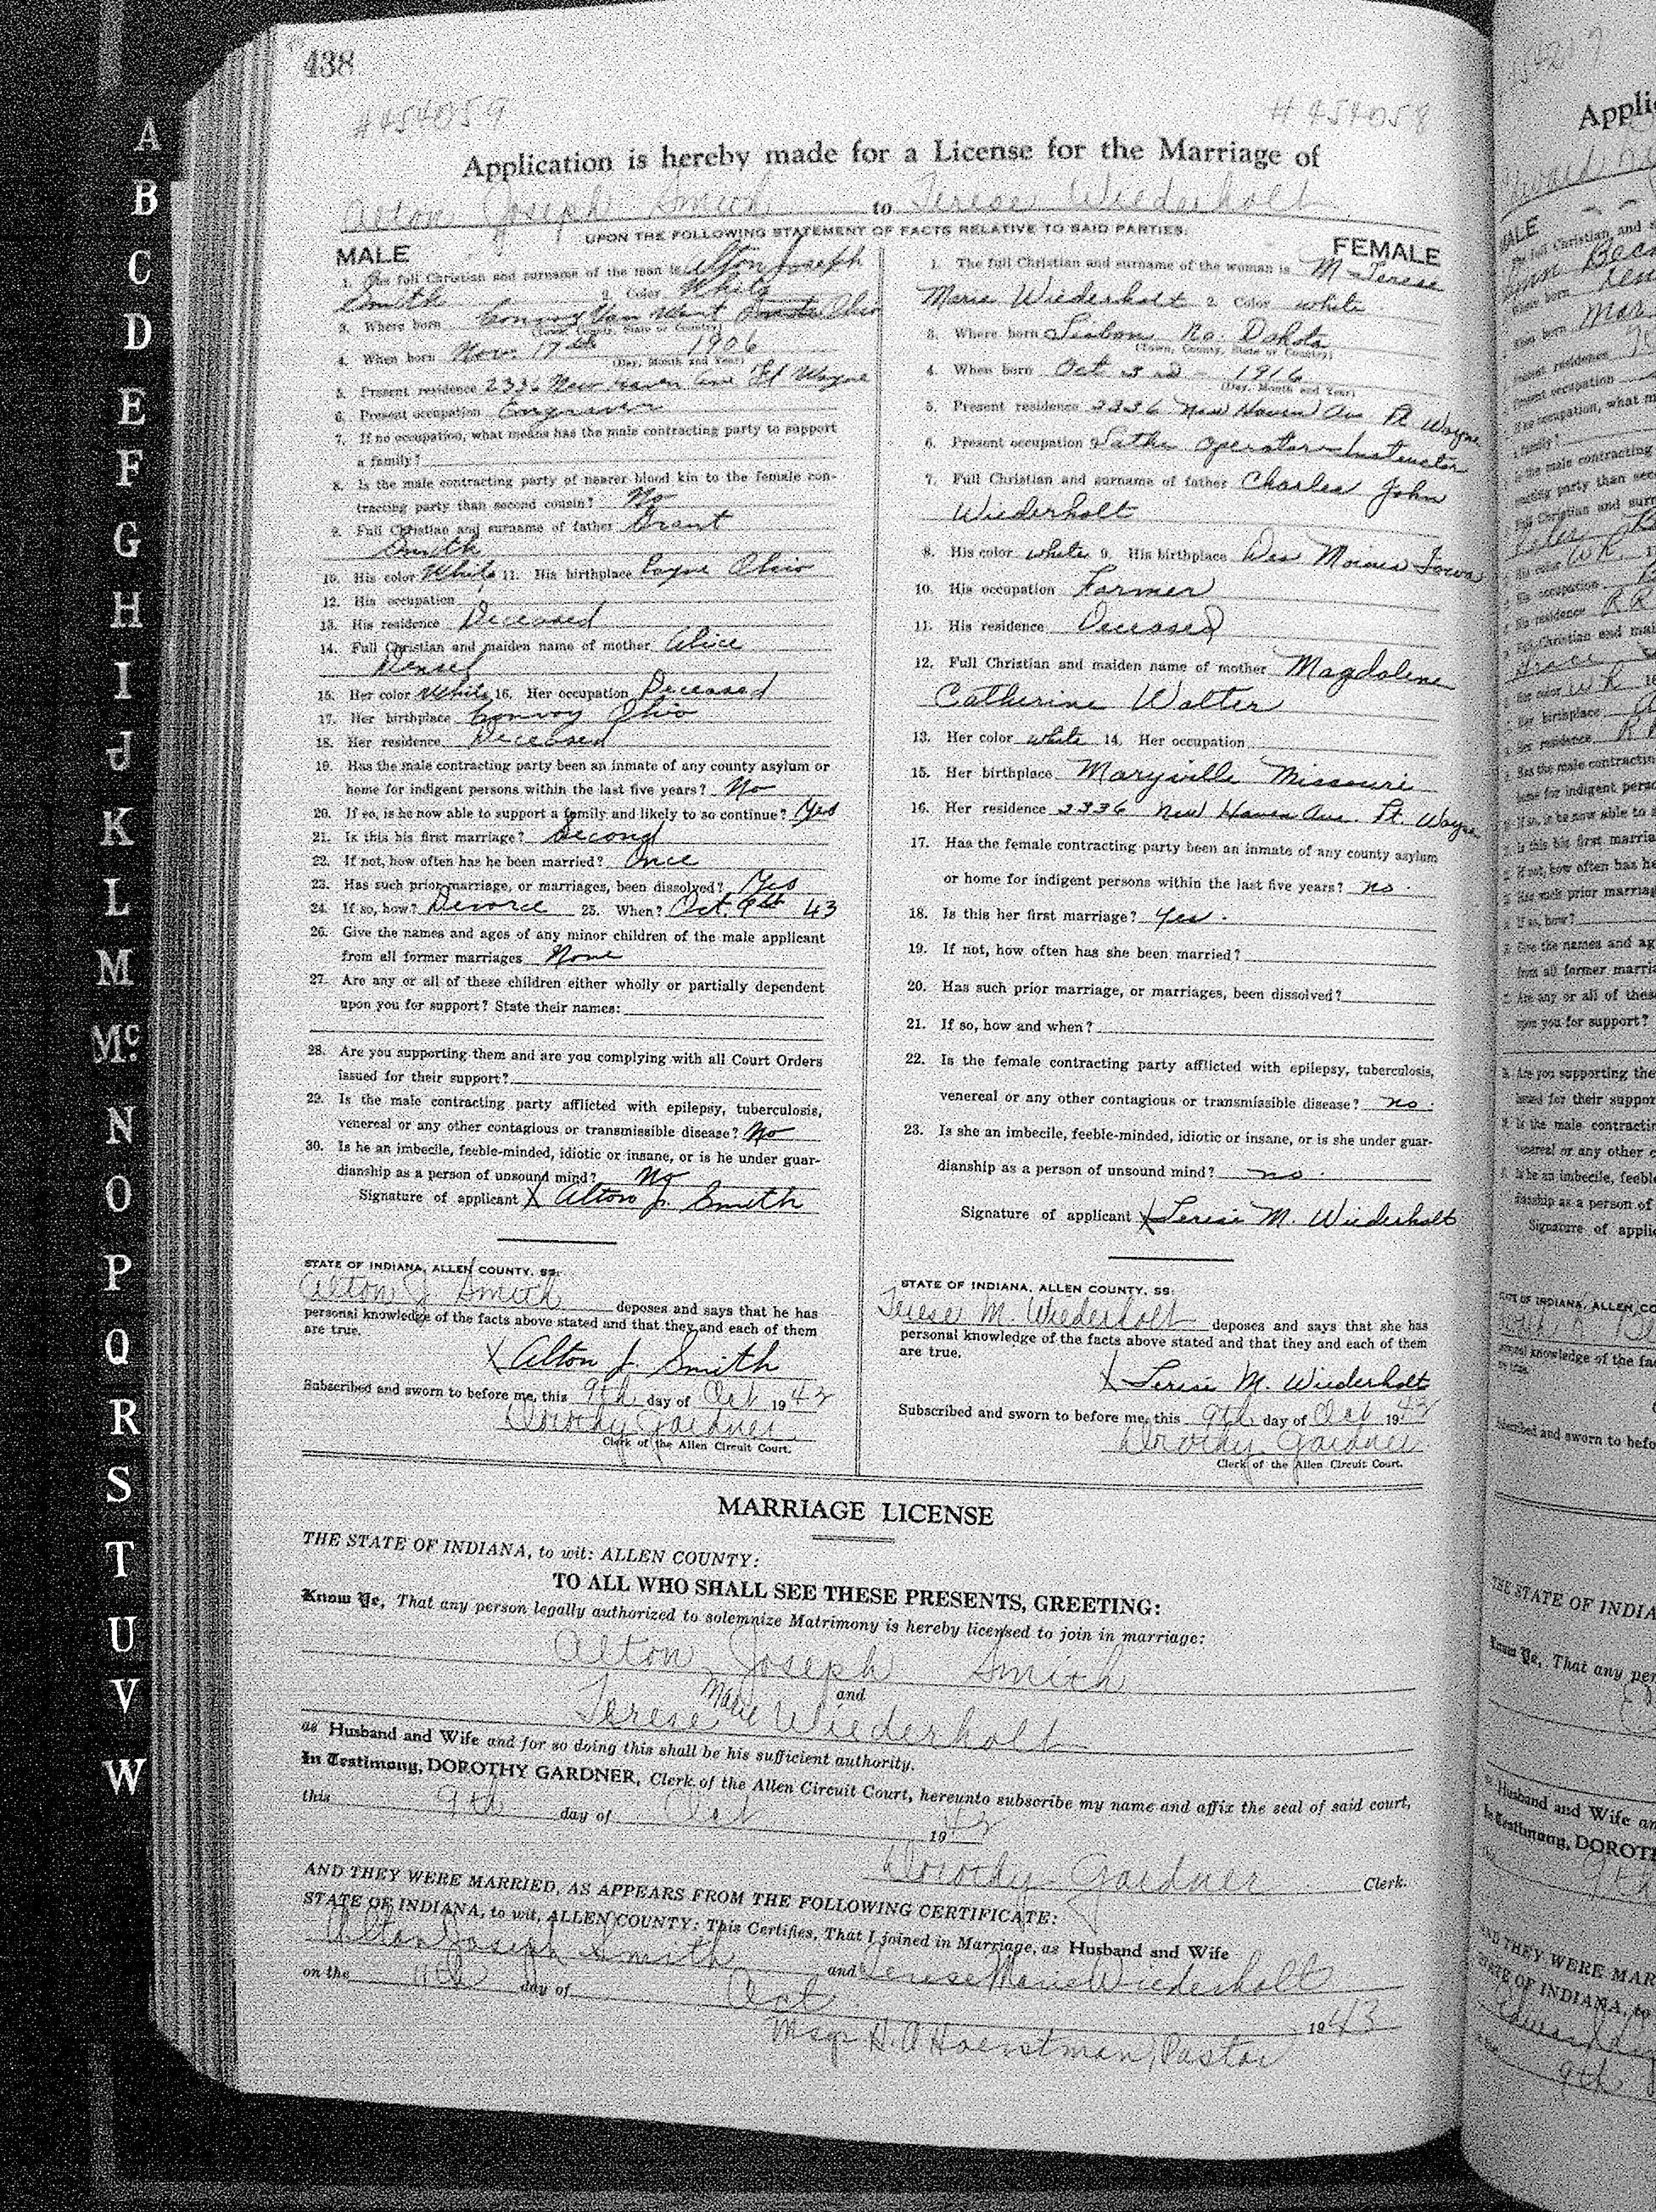 438
#454059 #454058
Application is hereby made for a License for the Marriage of
Alton Joseph Smith to Terese Wiederholt
UPON THE FOLLOWING STATEMENT OF FACTS RELATIVE TO SAID PARTIES:
MALE
1. The full Christian and surname of the man is Alton Joseph
Smith 2. Color White
3. Where born Convoy Van Wert Ohio
(Town, County, State or Country)
4. When born Nov. 17th 1906
(Day, Month and Year)
5. Present residence 2336 New Haven Ave Ft Wayne
6. Present occupation Engraver
7. If no occupation, what means has the male contracting party to support
a family?
8. Is the male contracting party of nearer blood kin to the female con-
tracting party than second cousin? No
9. Full Christian and surname of father Grant
Smith
10. His color White 11. His birthplace Payne Ohio
12. His occupation
13. His residence Deceased
14. Full Christian and maiden name of mother Alice
15. Her color White 16. Her occupation Deceased
17. Her birthplace Convoy Ohio
18. Her residence Deceased
19. Has the male contracting party been an inmate of any county asylum or
home for indigent persons within the last five years? No
20. If so, is he now able to support a family and likely to so continue? Yes
21. Is this his first marriage? Second
22. If not, how often has he been married? Once
23. Has such prior marriage, or marriages, been dissolved? Yes
24. If so, how? Divorce 25. When? Oct. 43
26. Give the names and ages of any minor children of the male applicant
from all former marriages None
27. Are any or all of these children either wholly or partially dependent
upon you for support? State their names:
28. Are you supporting them and are you complying with all Court Orders
issued for their support?
29. Is the male contracting party afflicted with epilepsy, tuberculosis,
venereal or any other contagious or transmissible disease? No
30. Is he an imbecile, feeble-minded, idiotic or insane, or is he under guar-
dianship as a person of unsound mind? No
Signature of applicant X Alton J. Smith
STATE OF INDIANA, ALLEN COUNTY, SS:
Alton J Smith deposes and says that he has
personal knowledge of the facts above stated and that they and each of them
are true.
X Alton J. Smith
Subscribed and sworn to before me, this 9th day of Oct 1943
Dorothy Gardner
Clerk of the Allen Circuit Court.
FEMALE
1. The full Christian and surname of the woman is M-Terese
Marie Wiederholt 2. Color white
3. Where born Lisbon No. Dakota
(Town, County, State or Country)
4. When born Oct 3rd - 1916
(Day, Month and Year)
5. Present residence 2336 New Haven Av Ft Wayne
6. Present occupation Lathe Operator-Instructor
7. Full Christian and surname of father Charles John
Wiederholt
8. His color white 9. His birthplace Des Moines Iowa
10. His occupation Farmer
11. His residence Deceased
12. Full Christian and maiden name of mother Magdalene
Catherine Walter
13. Her color white 14. Her occupation
15. Her birthplace Maryville Missouri
16. Her residence 2336 New Haven Ave. Ft. Wayne
17. Has the female contracting party been an inmate of any county asylum
or home for indigent persons within the last five years? no.
18. Is this her first marriage? Yes.
19. If not, how often has she been married?
20. Has such prior marriage, or marriages, been dissolved?
21. If so, how and when?
22. Is the female contracting party afflicted with epilepsy, tuberculosis,
venereal or any other contagious or transmissible disease? no.
23. Is she an imbecile, feeble-minded, idiotic or insane, or is she under guar-
dianship as a person of unsound mind? no.
Signature of applicant X Terese M. Wiederholt
STATE OF INDIANA, ALLEN COUNTY, SS:
Terese M. Wiederholt deposes and says that she has
personal knowledge of the facts above stated and that they and each of them
are true.
X Terese M. Wiederholt
Subscribed and sworn to before me, this 9th day of Oct 1943
Dorothy Gardner
Clerk of the Allen Circuit Court.
MARRIAGE LICENSE
THE STATE OF INDIANA, to wit: ALLEN COUNTY:
TO ALL WHO SHALL SEE THESE PRESENTS, GREETING:
Know Ye, That any person legally authorized to solemnize Matrimony is hereby licensed to join in marriage:
Alton Joseph Smith
and
Terese Marie Wiederholt
as Husband and Wife and for so doing this shall be his sufficient authority.
In Testimony, DOROTHY GARDNER, Clerk of the Allen Circuit Court, hereunto subscribe my name and affix the seal of said court,
this 9th day of Oct 1943
Dorothy Gardner Clerk.
AND THEY WERE MARRIED, AS APPEARS FROM THE FOLLOWING CERTIFICATE:
STATE OF INDIANA, to wit, ALLEN COUNTY: This Certifies, That I joined in Marriage, as Husband and Wife
Alton Joseph Smith and Terese Marie Wiederholt
on the 11th day of Oct 1943
Msgr H. A Hoerstman, Pastor
A
B
C
D
E
F
G
H
I
J
K
L
M
Mc.
N
O
P
Q
R
S
T
U
V
W